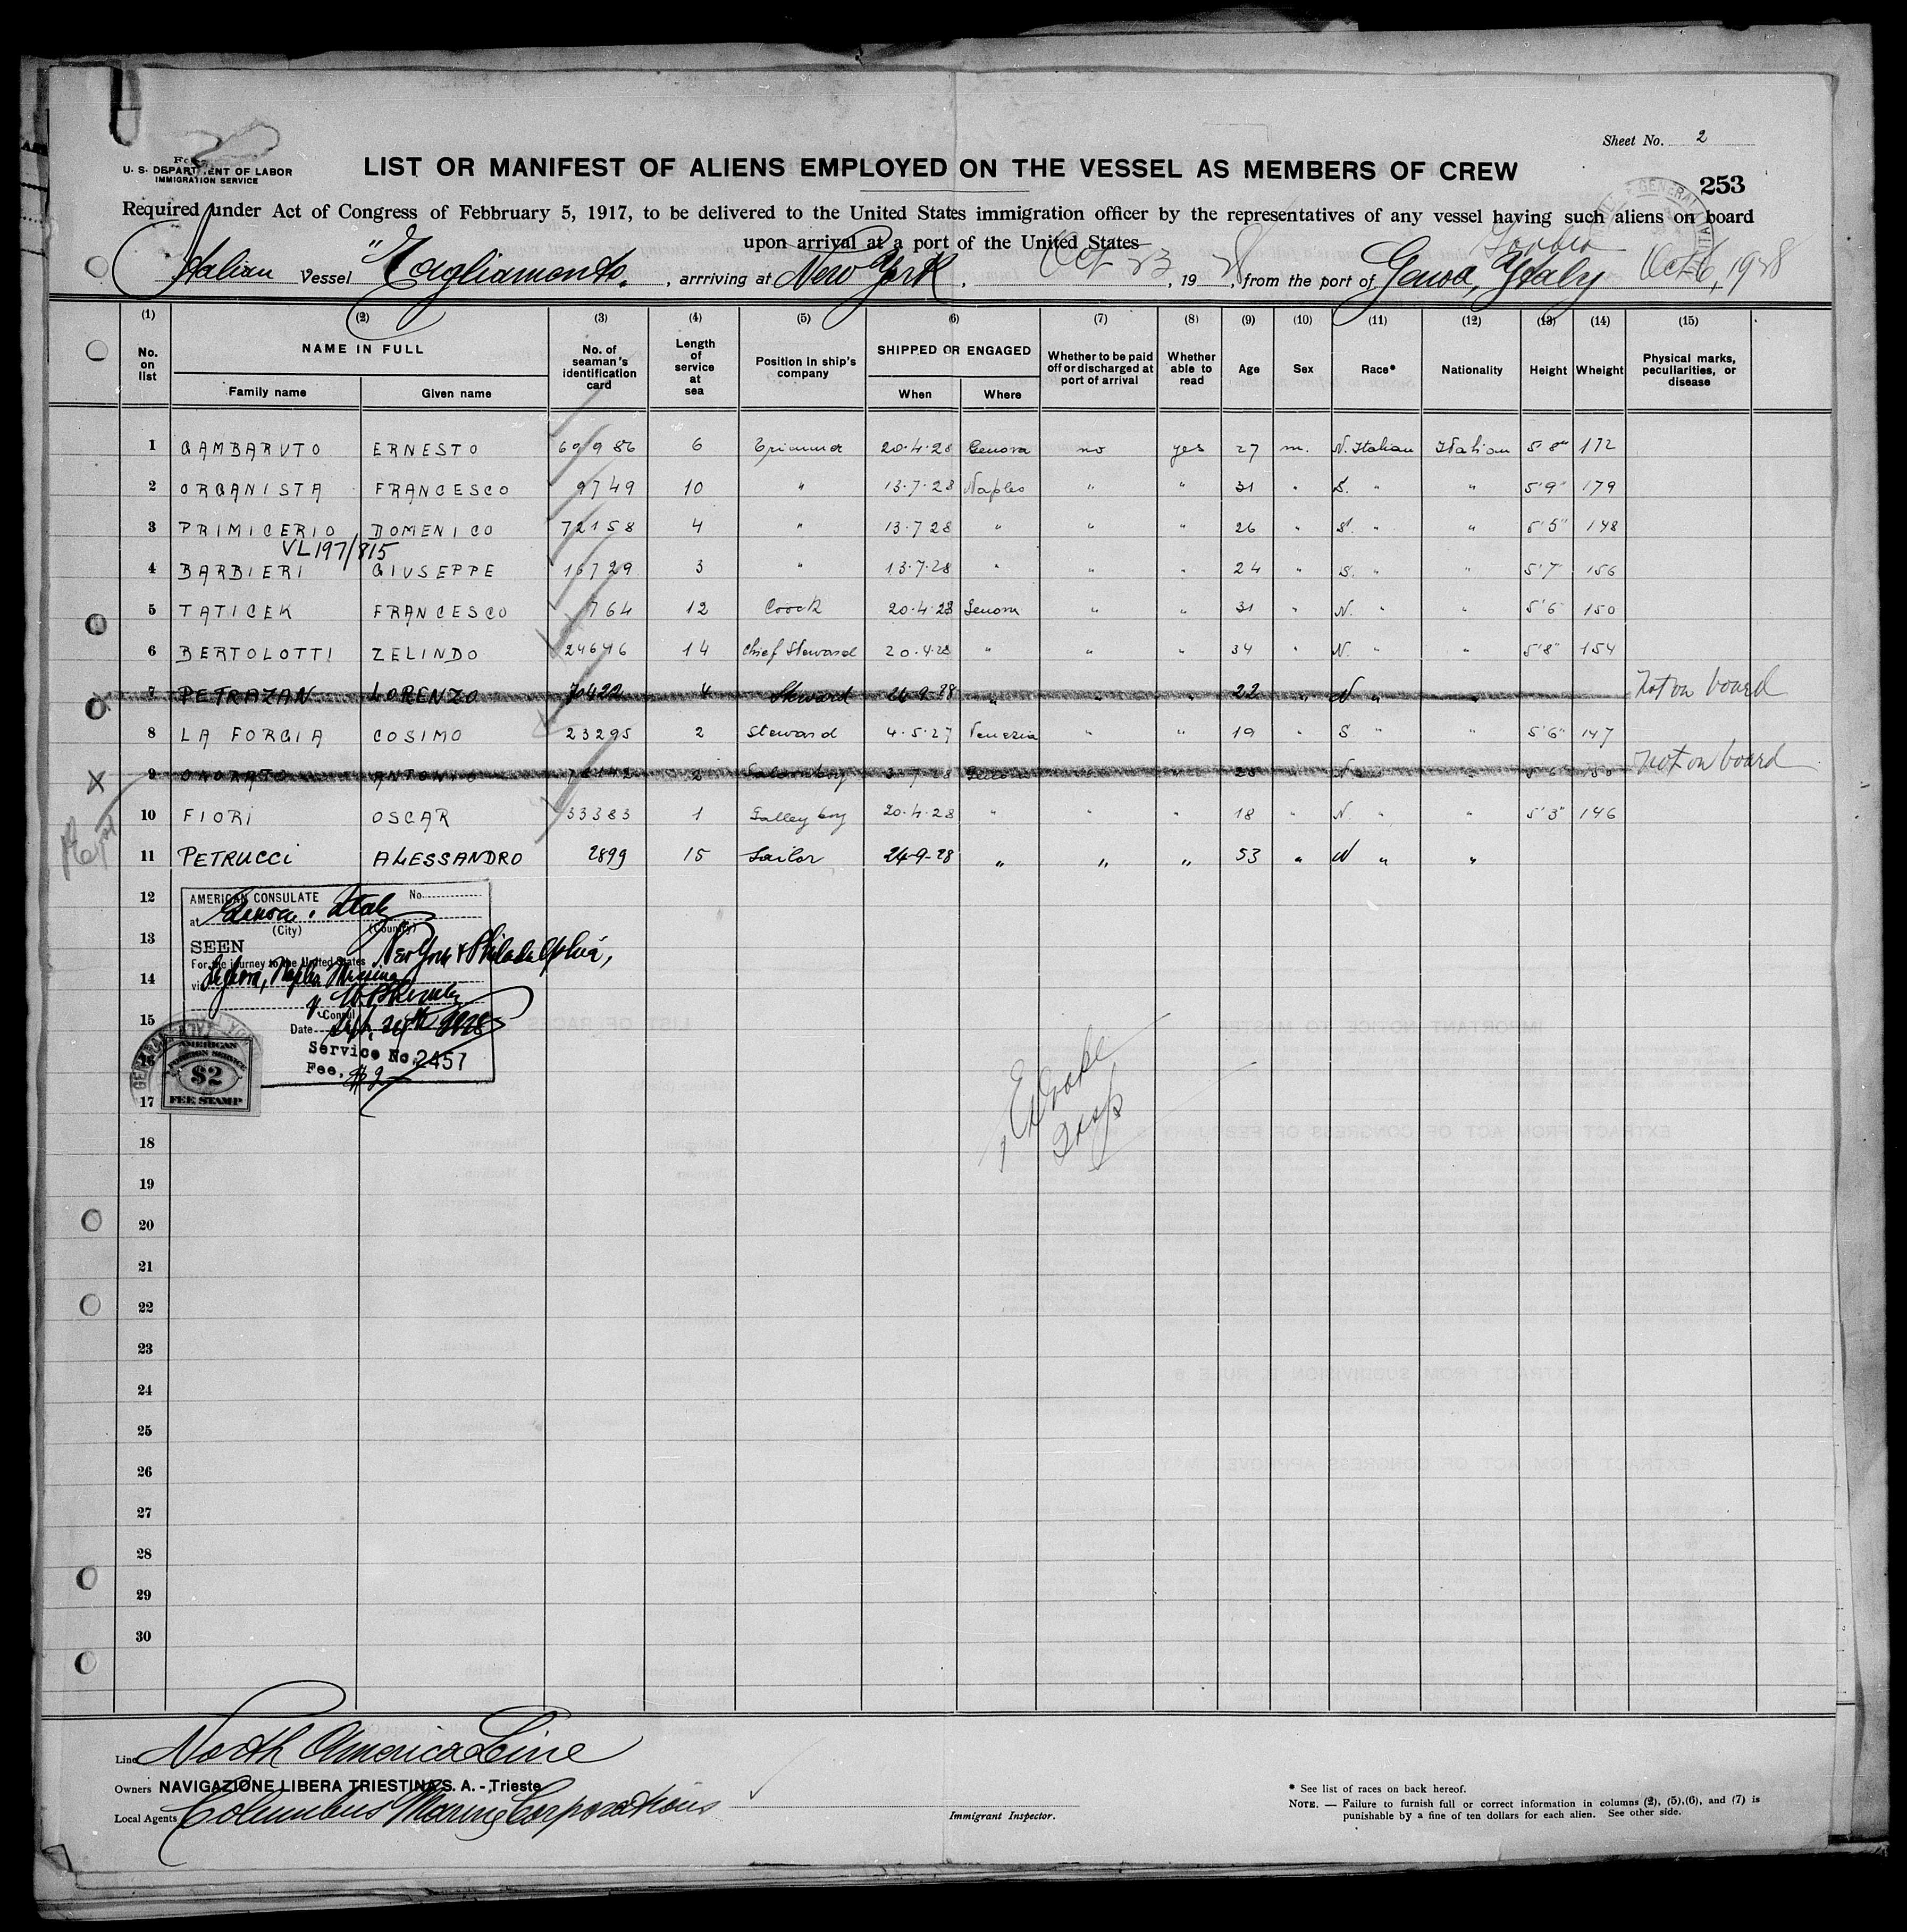 Sheet No. 2
U. S. DEPARTMENT OF LABOR
IMMIGRATION SERVICE
LIST OR MANIFEST OF ALIENS EMPLOYED ON THE VESSEL AS MEMBERS OF CREW
253
Required under Act of Congress of Febbruary 5, 1917, to be delivered to the United States immigration officer by the representatives of any vessel having such aliens on board
upon arrival at a port of the United States
Italian Vessel "Tagliamento", arrriving at New York, Oct 23, 1928, from the port of Genoa, Italy Oct 6, 1928
(1) (2) (3) (4) (5) (6) (7) (8) (9) (10) (11) (12) (13) (14) (15)
No. on list NAME IN FULL Family name Given name No. of seaman's identification card Length of service at sea Position in ship's company SHIPPED OR ENGAGED When Where Whether to be paid off or discharged at port of arrival Whether able to read Age Sex Race* Nationality Height Wheight Physical marks, peculiarities, or disease
1 GAMBARUTO ERNESTO 69986 6 20.4.28 Genova no yes 27 m. N. Italian Italian 5'8" 172
2 ORGANISTA FRANCESCO 9749 10 " 13.7.28 Naples " " 31 " S. " " 5'9" 179
3 PRIMICERIO DOMENICO 72158 4 " 13.7.28 " " " 26 " S. " " 5'5" 148
VL197/815
4 BARBIERI GIUSEPPE 16729 3 " 13.7.28 " " " 24 " S. " " 5'7" 156
5 TATICEK FRANCESCO 764 12 Coock 20.4.28 Genova " " 31 " N. " " 5'6" 150
6 BERTOLOTTI ZELINDO 24646 14 Chief Steward 20.4.28 " " " 34 " N. " " 5'8" 154
7 PETRAZAN LORENZO 70422 4 Steward 24-9-28 " " " 22 " N " " Not on board
8 LA FORGIA COSIMO 23295 2 Steward 4.5.27 Venezia " " 19 " S " " 5'6" 147
9 ONORATO ANTONIO 2 Saloonboy 3.7.28 Genova " " N " " 5'6" 150 not on board
10 FIORI OSCAR 33383 1 Galley boy 20.4.28 " " " 18 " N. " " 5'3" 146
11 PETRUCCI ALESSANDRO 2899 15 Sailor 24-9-28 " " " 53 " N " "
12
13
14
15
16
17
18
19
20
21
22
23
24
25
26
27
28
29
30
AMERICAN CONSULATE No.
at Genoa, Italy
(City) (Country)
SEEN
For the journey to the United States New York & Philadelphia,
via Leghorn, Naples Messina
Consul
Date Sept. 24th 1928
Service No. 2457
Fee, $2
AMERICAN
FOREIGN SERVICE
$2
FEE STAMP
Line North America Line
Owners NAVIGAZIONE LIBERA TRIESTINA S. A. - Trieste
Local Agents Columbus Marine Corporations
Immigrant Inspector.
* See list of races on back hereof.
NOTE. — Failure to furnish full or correct information in columns (2), (5),(6), and (7) is
punishable by a fine of ten dollars for each alien. See other side.